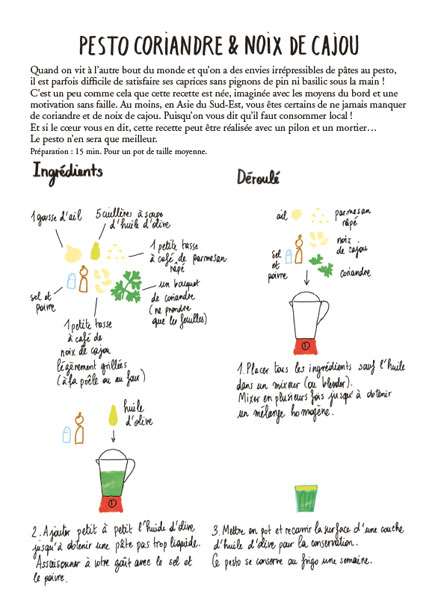 PESTO CORIANDRE & NOIX DE CAJOU
Quand on vit à l'autre bout du monde et qu'on a des envies irrépressibles de pâtes au pesto,
il est parfois difficile de satisfaire ses caprices sans pignons de pin ni basilic sous la main !
C'est un peu comme cela que cette recette est née, imaginée avec les moyens du bord et une
motivation sans faille. Au moins, en Asie du Sud-Est, vous êtes certains de ne jamais manquer
de coriandre et de noix de cajou. Puisqu'on vous dit qu'il faut consommer local !
Et si le cœur vous en dit, cette recette peut être réalisée avec un pilon et un mortier…
Le pesto n'en sera que meilleur.
Préparation : 15 min. Pour un pot de taille moyenne.
Ingrédients
1 gousse d'ail
5 cuillères à soupe
d'huile d'olive
1 petite tasse
à café de parmesan
râpé
sel et
poivre
un bouquet
de coriandre
(ne prendre
que les feuilles)
1 petite tasse
à café de
noix de cajou
légèrement grillées
(à la poêle ou au four)
Déroulé
ail
parmesan
râpé
noix
de cajou
sel et
poivre
coriandre
1. Placer tous les ingrédients sauf l'huile
dans un mixeur (ou blender).
Mixer en plusieurs fois jusqu'à obtenir
un mélange homogène.
huile
d'olive
2. Ajouter petit à petit l'huile d'olive
jusqu'à obtenir une pâte pas trop liquide.
Assaisonner à votre goût avec le sel et
le poivre.
3. Mettre en pot et recouvrir la surface d'une couche
d'huile d'olive pour la conservation.
Ce pesto se conserve au frigo une semaine.